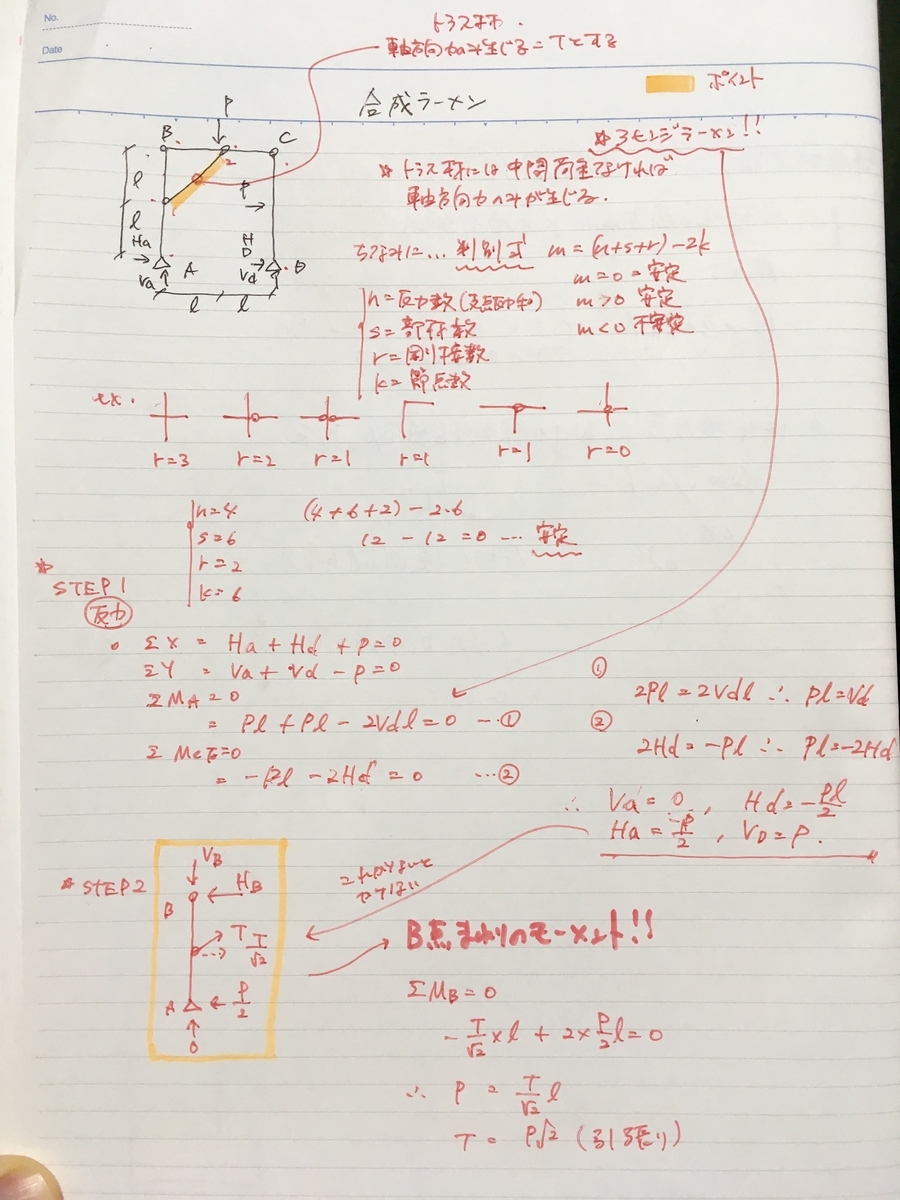 No.
Date
トラス材.
軸方向力のみ生じる=Tとする
ポイント
合成ラーメン
P
B
C
2
1
l
l
P
Ha
Va
A
H
D
Vd
D
l
l
☆3ヒンジラーメン!!
☆トラス材には中間荷重なければ
軸方向力のみが生じる.
ちなみに… 判別式 m=(n+s+r)-2k
m=0=安定
m>0 安定
m<0 不安定
n=反力数(支点の和)
s=部材数
r=剛接数
k=節点数
ex.
r=3 r=2 r=1 r=1 r=1 r=0
n=4 (4+6+2)-2.6
s=6 12-12=0…安定
r=2
k=6
STEP1
反力
ΣX = Ha+Hd+P=0
ΣY = Va+Vd-P=0
ΣMA=0
= Pl+Pl-2Vdl=0 …①
= -Pl-2Hd=0 …②
①
2Pl=2Vdl ∴ Pl=Vd
②
2Hd=-Pl ∴ Pl=-2Hd
∴ Va=0, Hd=-Pl/2
Ha=-P/2, VD=P.
☆STEP2
VB
HB
B
T T/√2
A
P/2
0
B点まわりのモーメント!!
ΣMB=0
-T/√2×l+2×P/2l=0
∴ P=T/√2 l
T=P√2 (引張り)